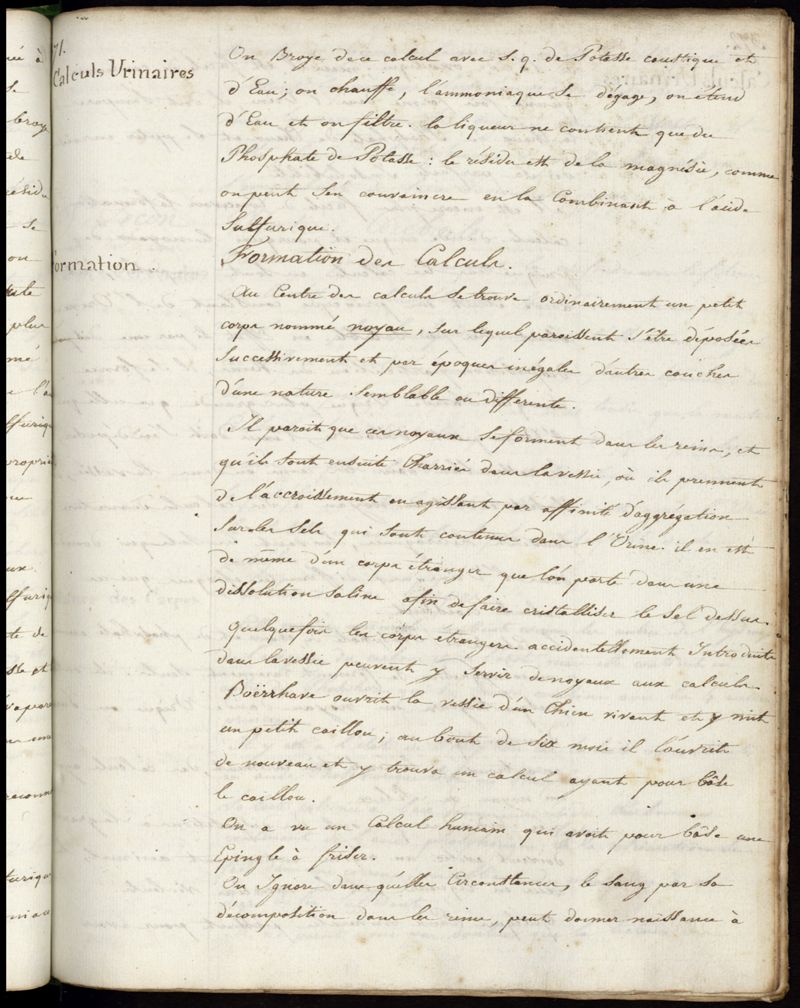 71.
Calculs Urinaires
On Broye de ce calcul avec S. q. de Potasse caustique et
d'Eau; on chauffe, l'ammoniaque se dégage, on étend
d'Eau et on filtre. la liqueur ne contient que du
Phosphate de Potasse : le résidu est de la magnésie, comme
on peut s'en convaincre en la Combinant à l'acide
Sulfurique.
Formation
Formation des Calculs.
Au Centre des calculs se trouve ordinairement un petit
corps nommé noyau, sur lequel paroissent s'être déposées
Successivement et par époques inégales d'autres couches
d'une nature semblable ou differente.
Il paroit que ces noyaux se forment dans les reins, et
qu'ils sont ensuite Charriés dans la vessie, où ils prennent
de l'accroissement en agissant par affinité d'aggrégation
Sur les Sels qui sont contenus dans l'Urine. il en est
de même d'un corps étranger que l'on porte dans une
dissolution saline afin de faire cristalliser le sel dessus.
quelquefois les corps étrangers accidentellement Introduits
dans la vessie peuvent y servir de noyaux aux calculs.
Boërrhave ouvrit la vessie d'un Chien vivant et y mit
un petit caillou; au bout de six mois il l'ouvrit
de nouveau et y trouva un calcul ayant pour bâse
le caillou.
On a vu un Calcul humain qui avoit pour bâse une
Epingle à friser.
On Ignore dans quelles Circonstances, le sang par sa
décomposition dans les reins, peut donner naissance à